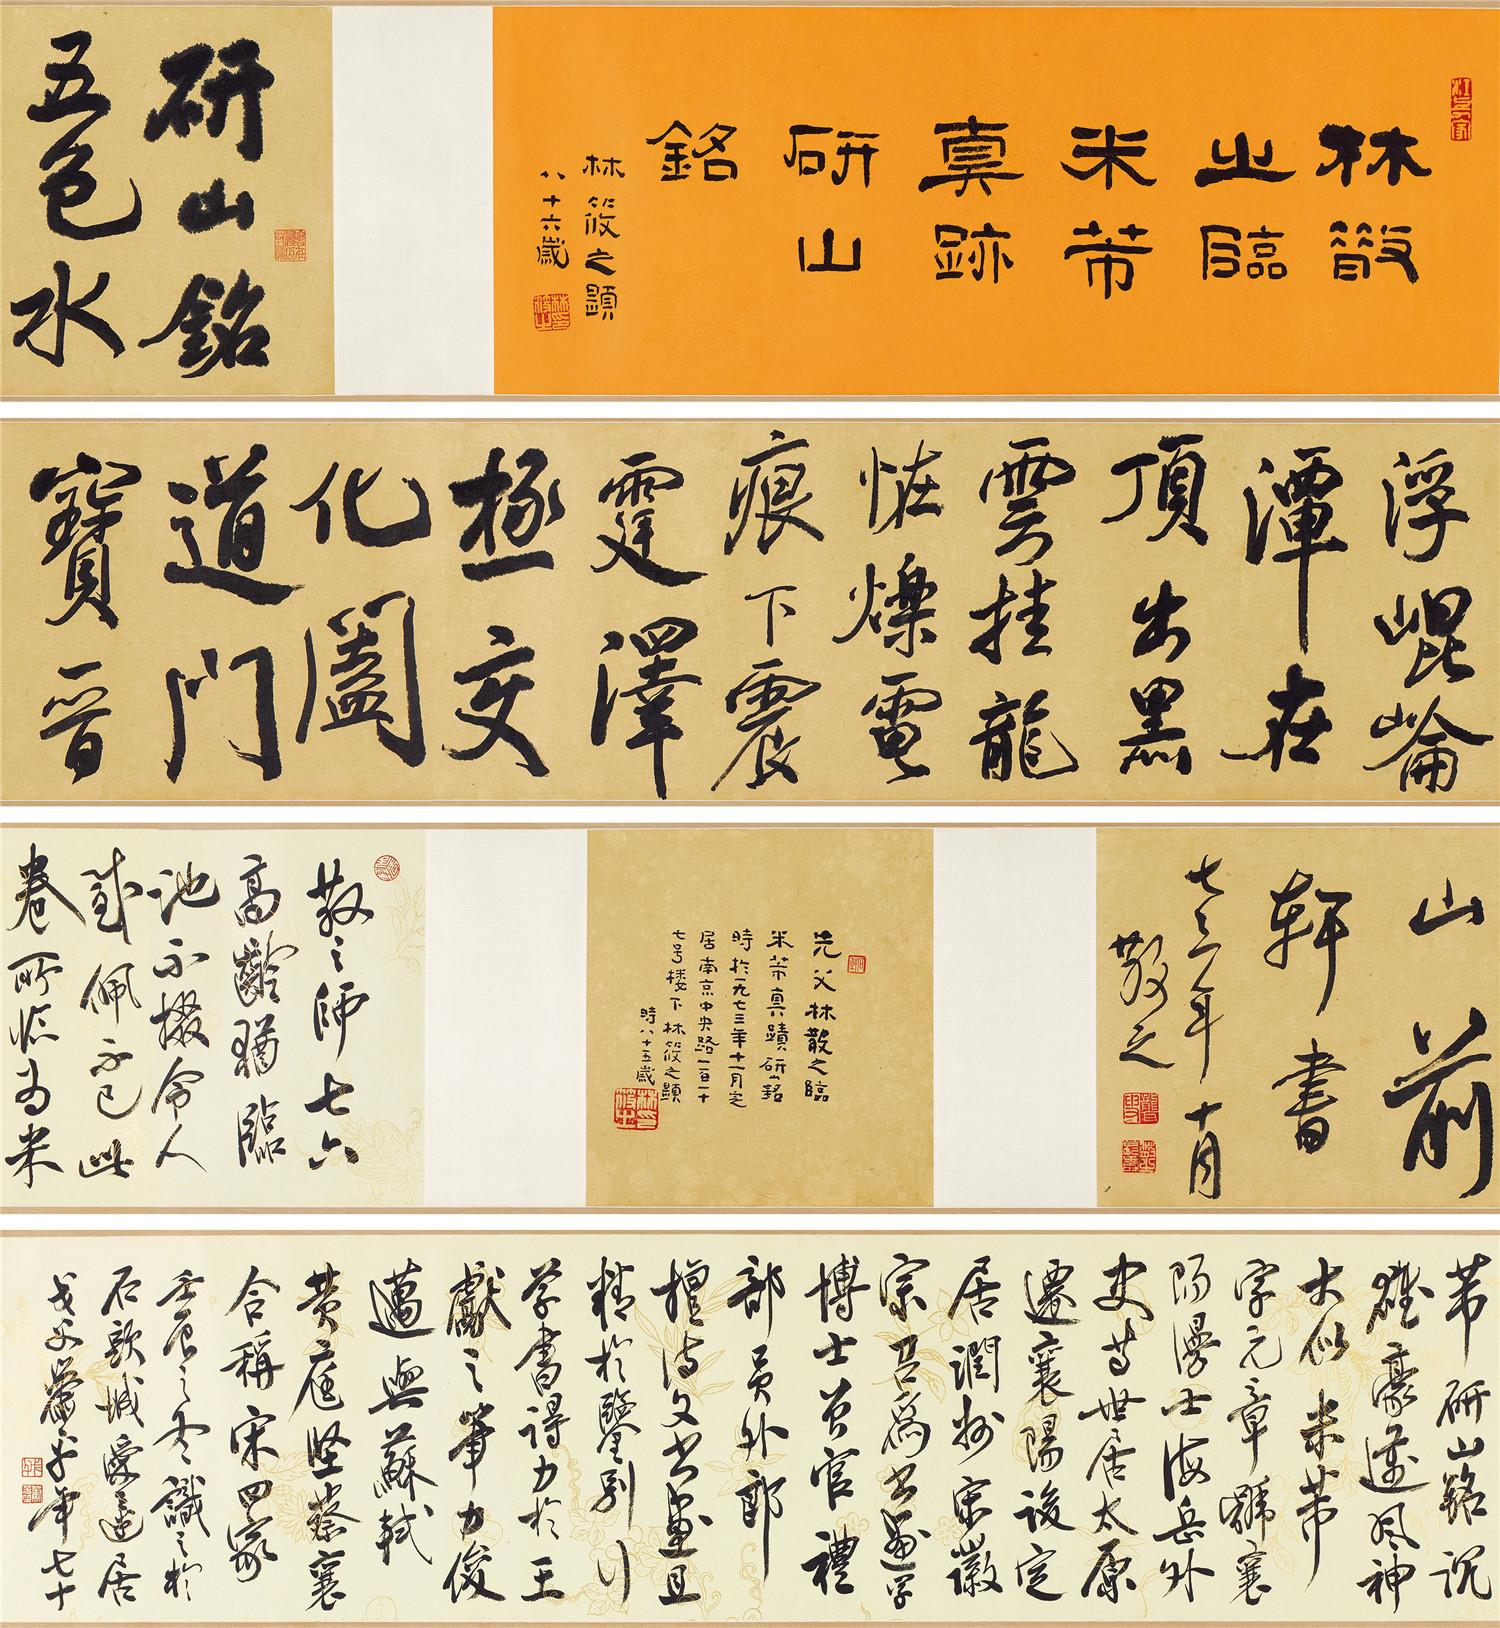 林散
之臨
米芾
真跡
研山
銘
林筱之題
八十六歲
研山銘
五色水
浮崐崘
潭在
頂出黑
雲挂龍
恠爍電
痕下震
霆澤
極交
化闔
道門
寶晉
山前
軒書
七三年十月
散之
先父林散之臨
米芾真蹟研山銘
時於一九七三年十一月定
居南京中央路一百一十
七号楼下林筱之題
時八十五歲
散之師七六
高齡猶臨
池不掇令人
感佩不已此
卷所临为米
芾研山銘沉
雄豪邁風神
大似米芾
字元章號襄
阳漫士海岳外
史等世居太原
遷襄陽後定
居潤州宋徽
宗召爲书画学
博士曾官禮
部員外郎
擅诗文书画且
精於鑒别行
学書得力於王
獻之筆力俊
邁與蘇軾
黄庭堅蔡襄
合稱宋四家
壬辰之冬識之於
石頭城愛蓮居
年七十